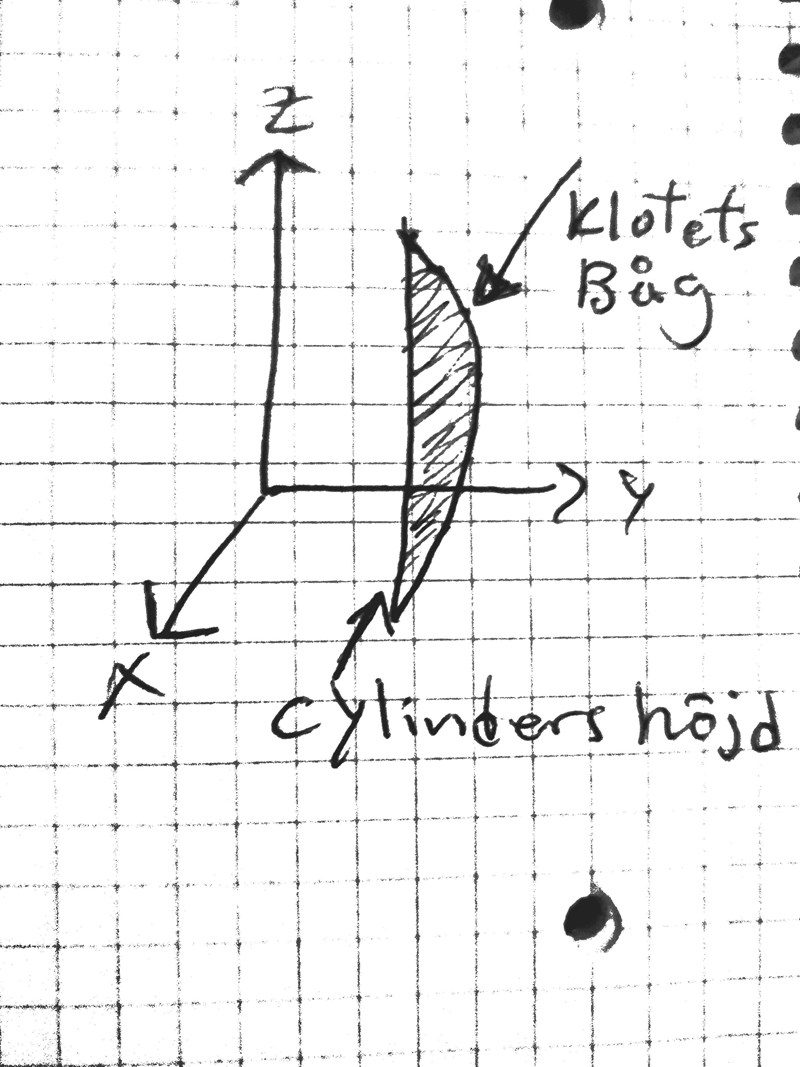 Z
Klotets
Båg
y
x
cylinders höjd